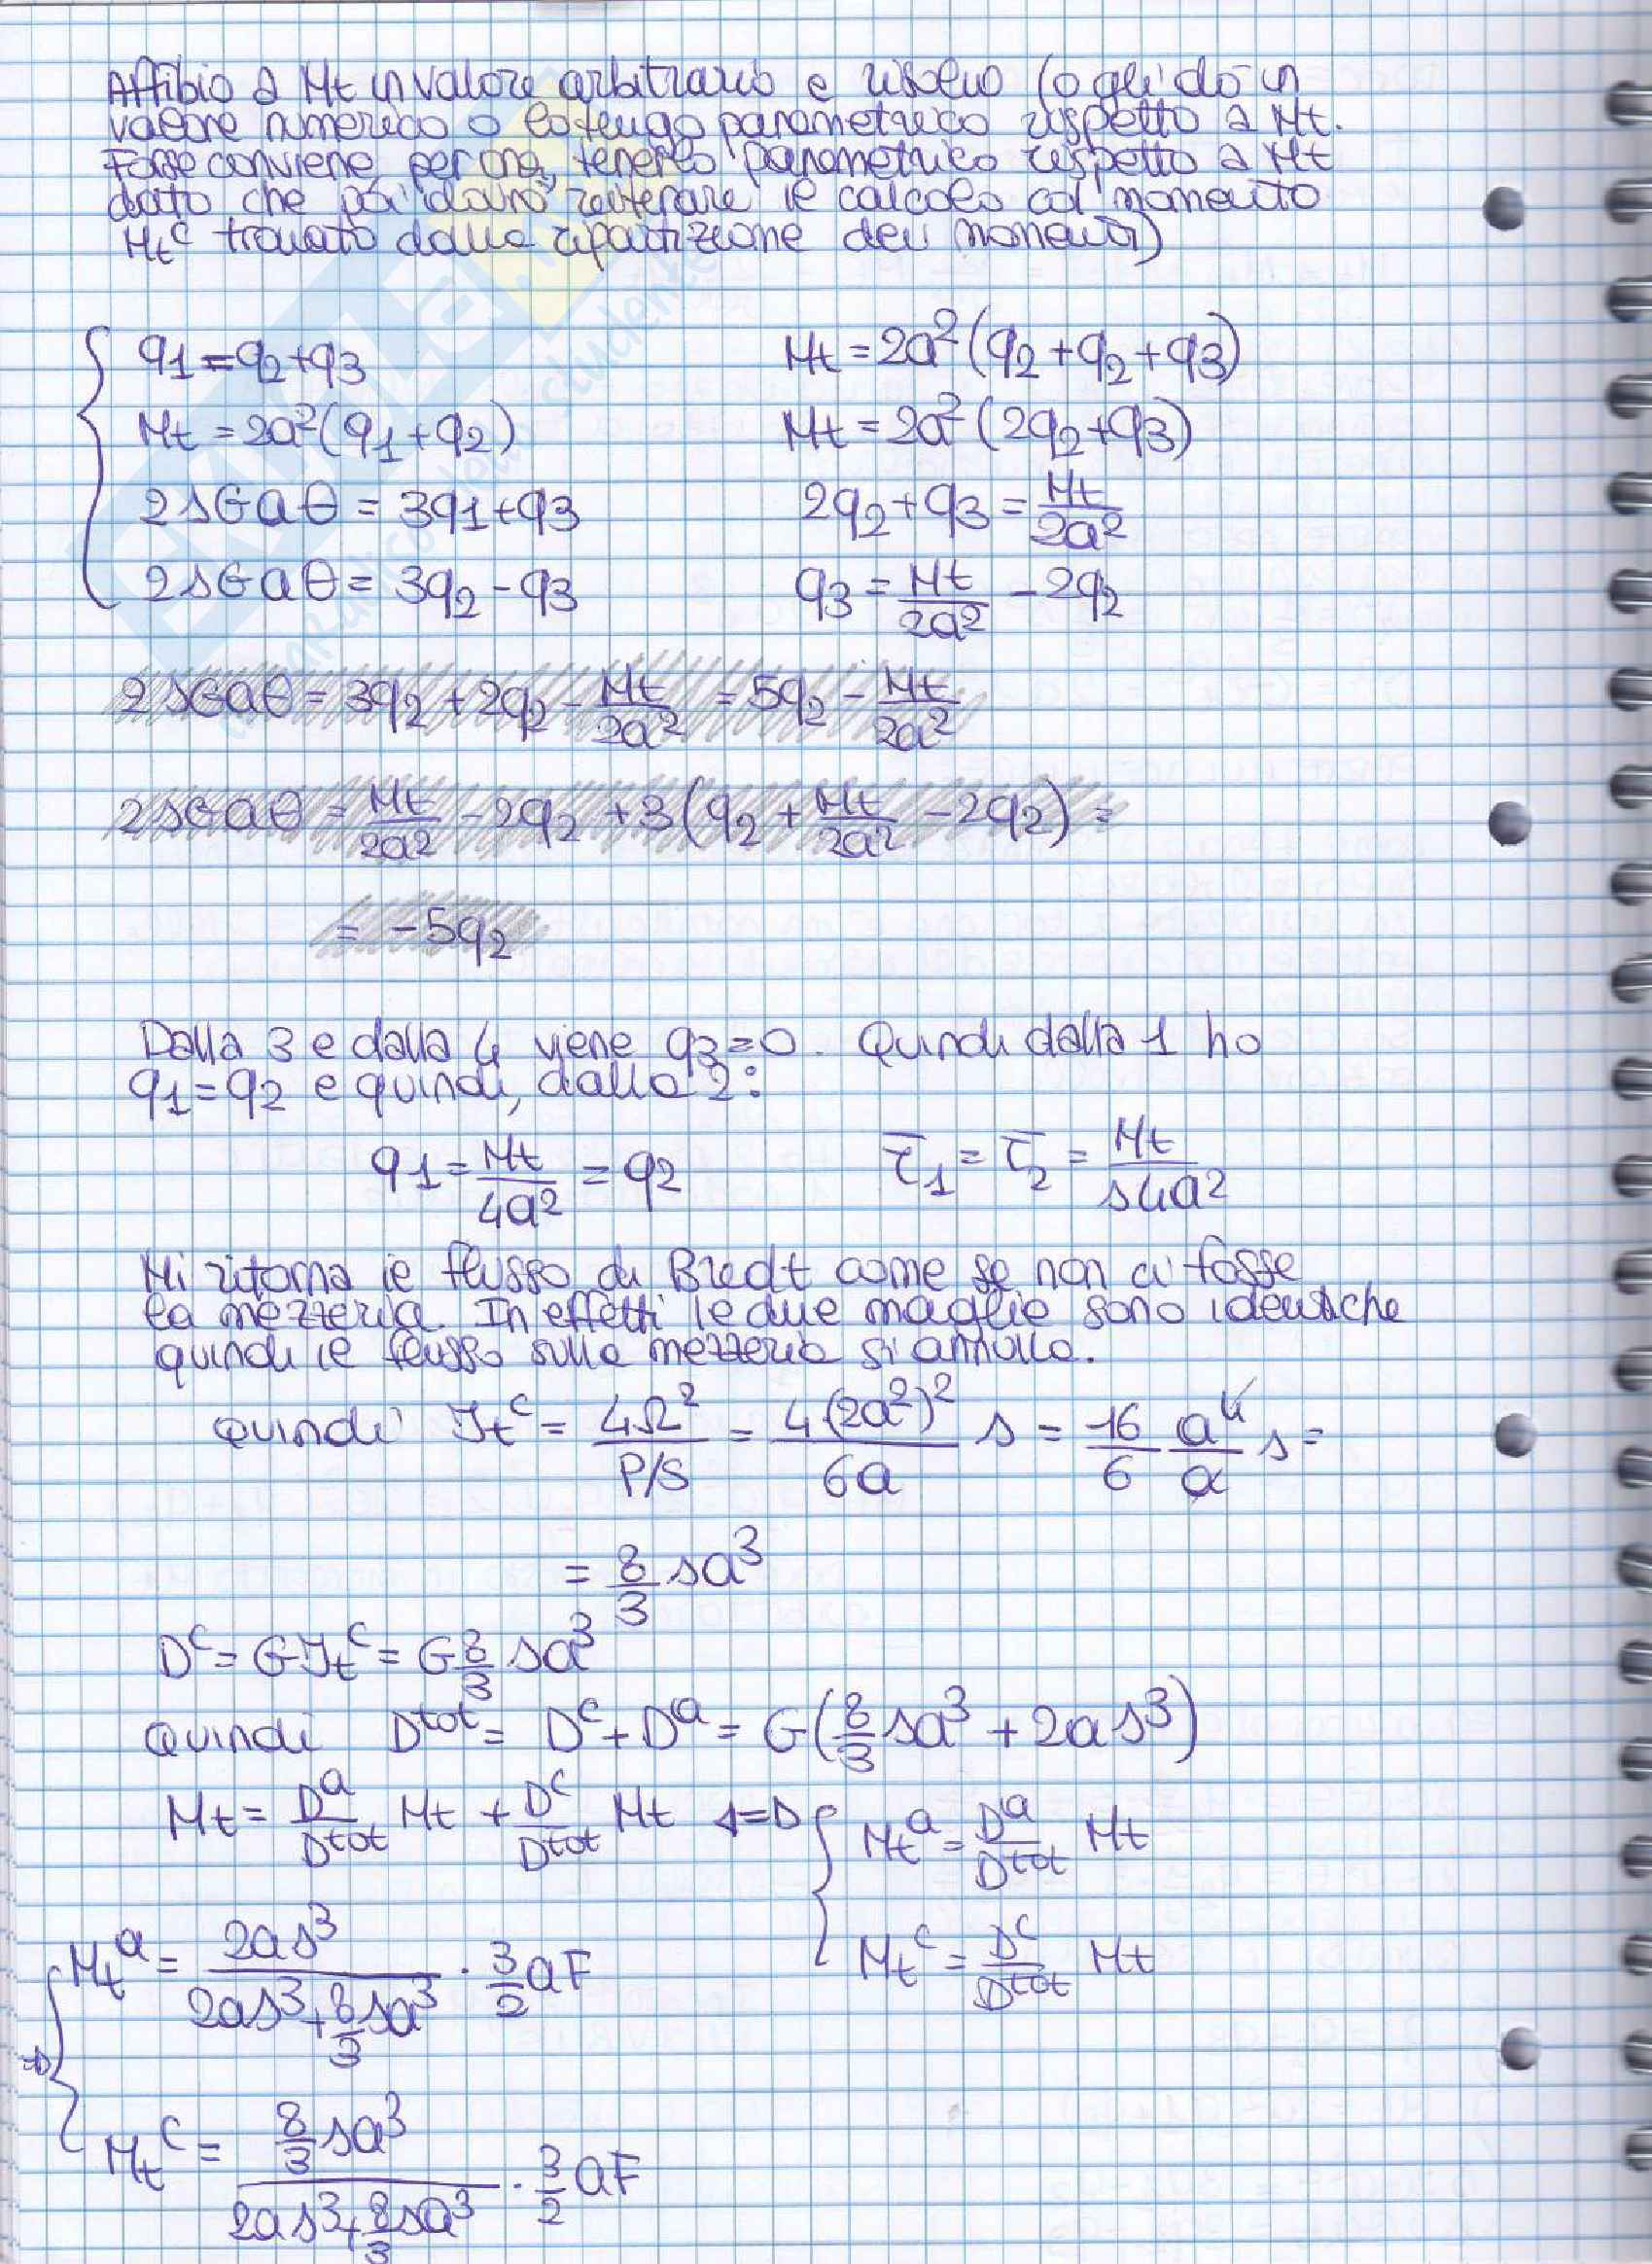 Affibio a Mt un valore arbitrario e risolvo (o gli do un
valore numerico o lo tengo parametrico rispetto a Mt.
Forse conviene, per ora, tenerlo parametrico rispetto a Mt
dato che poi dovrò reiterare il calcolo col momento
Mt^c trovato dalla ripartizione dei momenti)
q1 = q2 + q3
Mt = 2a²(q2 + q2 + q3)
Mt = 2a²(q1 + q2)
Mt = 2a²(2q2 + q3)
2sGaθ = 3q1 + q3
2q2 + q3 = Mt/2a²
2sGaθ = 3q2 - q3
q3 = Mt/2a² - 2q2
2sGaθ = 3q2 + 2q2 - Mt/2a² = 5q2 - Mt/2a²
2sGaθ = Mt/2a² - 2q2 + 3(q2 + Mt/2a² - 2q2) =
= -5q2
Dalla 3 e dalla 4 viene q3 = 0. Quindi dalla 1 ho
q1 = q2 e quindi, dalla 2:
q1 = Mt/4a² = q2
τ̄1 = τ̄2 = Mt/s4a²
Mi ritorna il flusso di Bredt come se non ci fosse
la mezzeria. In effetti le due maglie sono identiche
quindi il flusso sulla mezzeria si annulla.
quindi Jt^c = 4Ω²/P/S = 4(2a²)²/6a s = 16/6 a⁴/a s =
= 8/3 sa³
D^c = GJt^c = G 8/3 sa³
quindi D^tot = D^c + D^a = G(8/3 sa³ + 2as³)
Mt = D^a/D^tot Mt + D^c/D^tot Mt
Mt^a = D^a/D^tot Mt
Mt^c = D^c/D^tot Mt
Mt^a = 2as³/2as³+8/3sa³ · 3/2 aF
Mt^c = 8/3sa³/2as³+8/3sa³ · 3/2 aF